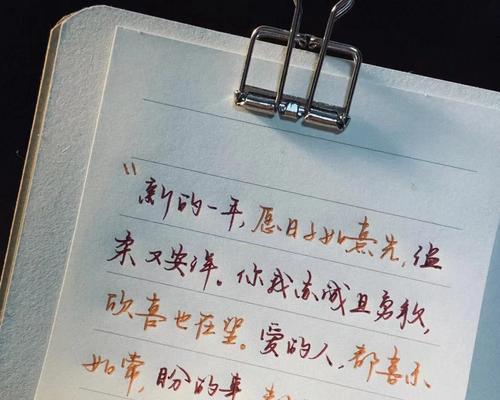 “新的一年,愿日子如熹光,温
柔又安详。你我赤诚且勇敢,
欣喜也在望。爱的人,都喜乐
如常,盼的事